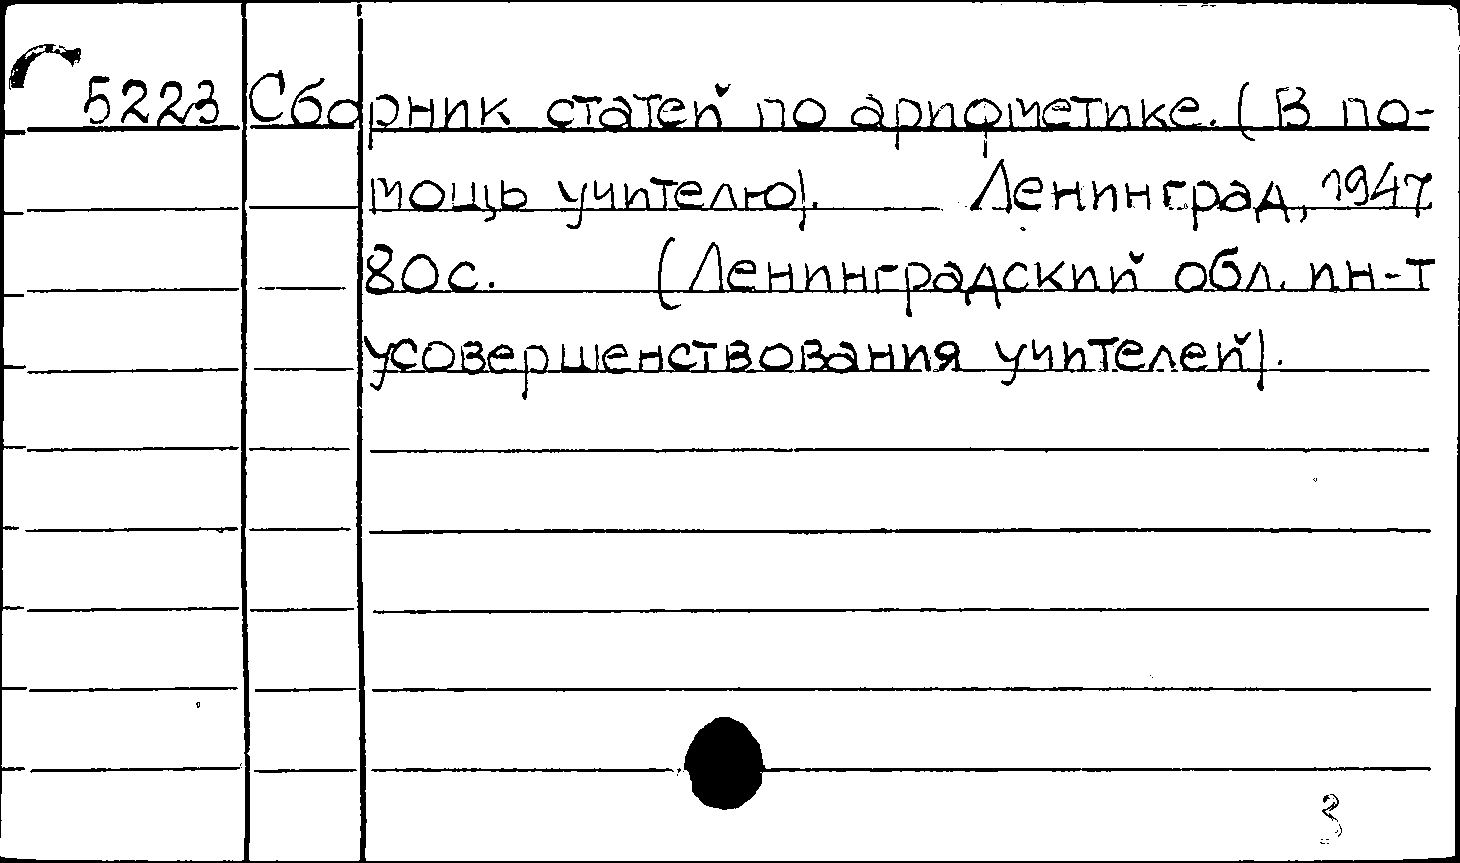 5223 Сборник статей по арифметике. (В по-
мощь учителю). Ленинград, 1947
80с. (Ленинградский обл. ин-т
усовершенствования учителей).
3